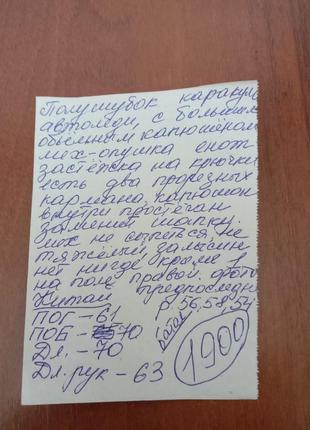 Полушубок каракуль
автоледи, с большим
объёмным капюшоном
мех-опушка енот
застёжка на крючки
есть два прорезных
кармана, капюшон
внутри простеган
заменит шапку.
мех не сыпется не
тяжёлый залысин
нет нигде кроме 1
на поле правой. фото
предпоследн
Китай Р. 56,58,54
ПОГ - 61
ПОБ - 70
Дл. - 70
Дл. рук - 63
1900